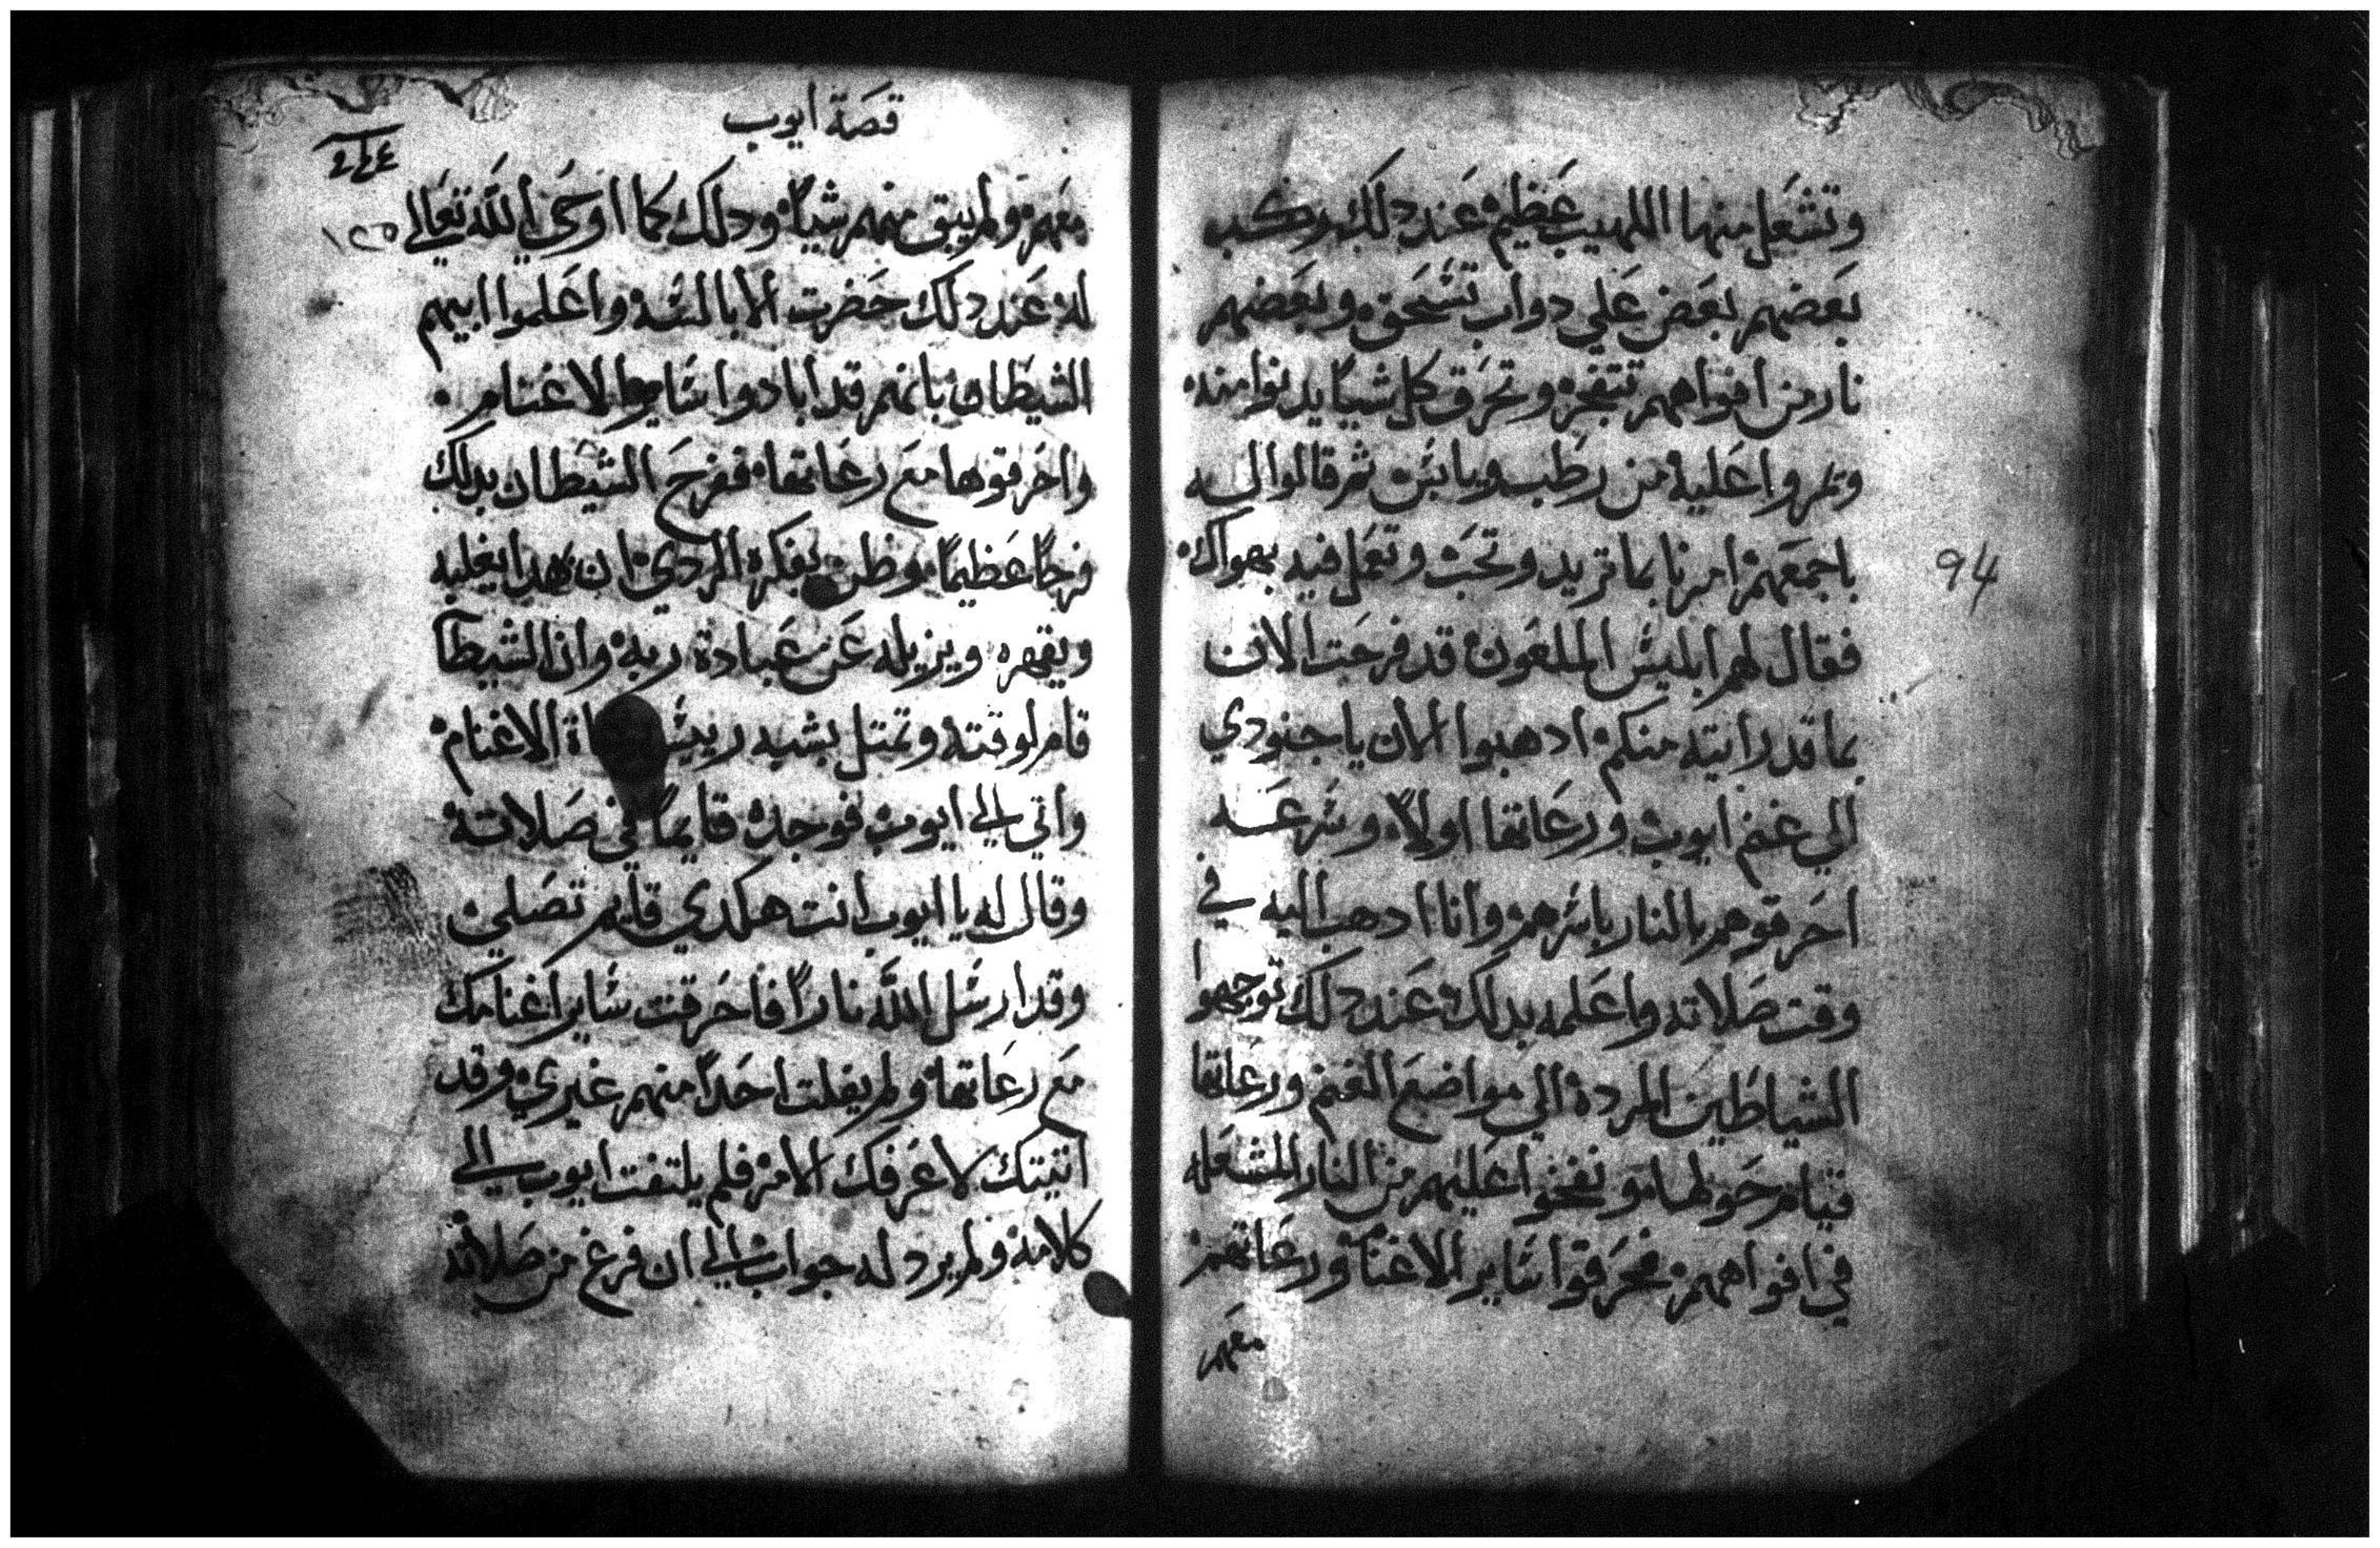 وتشعل منها اللهيب عظيم عند دلك ركب
بعضهم بعض علي دواب تشحق وبعضهم
نار من افواههم تنفجر وتحرق كل شيا يدنوا منه
ويمروا عليه من رطب ويابس ثم قالوا له
باجمعهم امرنا بما تريد وتحب وتعمل فيه بهواك
فقال لهم ابليس الملعون قد فرحت الان
بما قد رايته منكم ادهبوا الان يا جنودي
الي غنم ايوب ورعاتها اولا وسرعه
احرقوهم بالنار باسرهم وانا ادهب اليه في
وقت صلاته واعلمه بدلك عند دلك توجهوا
الشياطين المرده الي مواضع الغنم ورعاتها
قيام حولها ونفخوا عليهم من النار المشعله
في افواههم فحرقوا ساير الاغنام ورعاتهم
معهم
94
قصة ايوب
١٢٥
معهم ولم يبق منهم شيا ودلك كما اوحي الله تعالي
له عند دلك حضرت الابالسه واعلموا ابيهم
الشيطان بانهم قد ابادوا ساير الاغنام
واحرقوها مع رعاتها ففرح الشيطان بدلك
فرحا عظيما وظن بفكره الردي ان هدا يغلبه
ويقهره ويزيله عن عبادة ربه وان الشيطا
قام لوقته وتمتل بشبه رييس اة الاغنام
واتي الي ايوب فوجده قايما في صلاته
وقال له يا ايوب انت هكدي قايم تصلي
وقد ارسل الله نارا فاحرقت ساير اغنامك
مع رعاتها ولم يفلت احدا منهم غيري وقد
اتيتك لاعرفك الامر فلم يلتفت ايوب الي
كلامه ولم يرد له جواب الي ان فرغ من صلاته